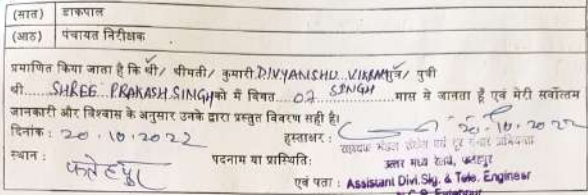 (सात) डाकपाल
(आठ) पंचायत निरीक्षक
प्रमाणित किया जाता है कि श्री/ श्रीमती/ कुमारी DIVYANSHU VIKRAM पुत्र/ पुत्री
SINGH
श्री SHREE PRAKASH SINGH को मैं विगत 02 मास से जानता हूँ एवं मेरी सर्वोत्तम
जानकारी और विश्वास के अनुसार उनके द्वारा प्रस्तुत विवरण सही है।
दिनांक: 20.10.2022 हस्ताक्षर: 20.10.2022
स्थान: फतेहपुर पदनाम या प्रास्थिति: उत्तर मध्य रेलवे, फतेहपुर
एवं पता: Assistant Divl. Sig. & Tele. Engineer